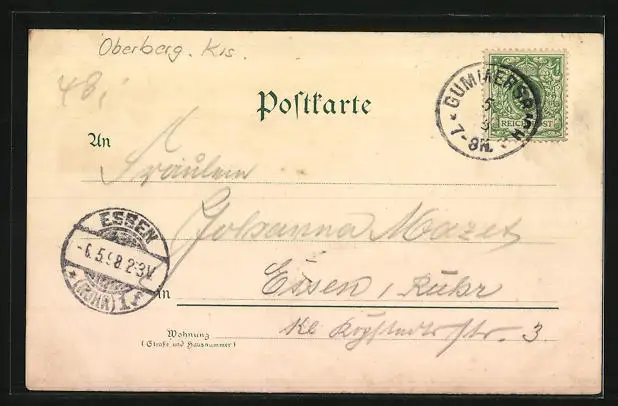 Oberberg. Krs.
48,
Postkarte
GUMMERSBACH
5 5
7-8N.
REICHSPOST
An
Fräulein
Johanna Mazet
ESSEN
-6.5.98.2-3V.
(RUHR) 1
in Essen, Ruhr
Wohnung
(Straße und Hausnummer)
Kl. str. 3